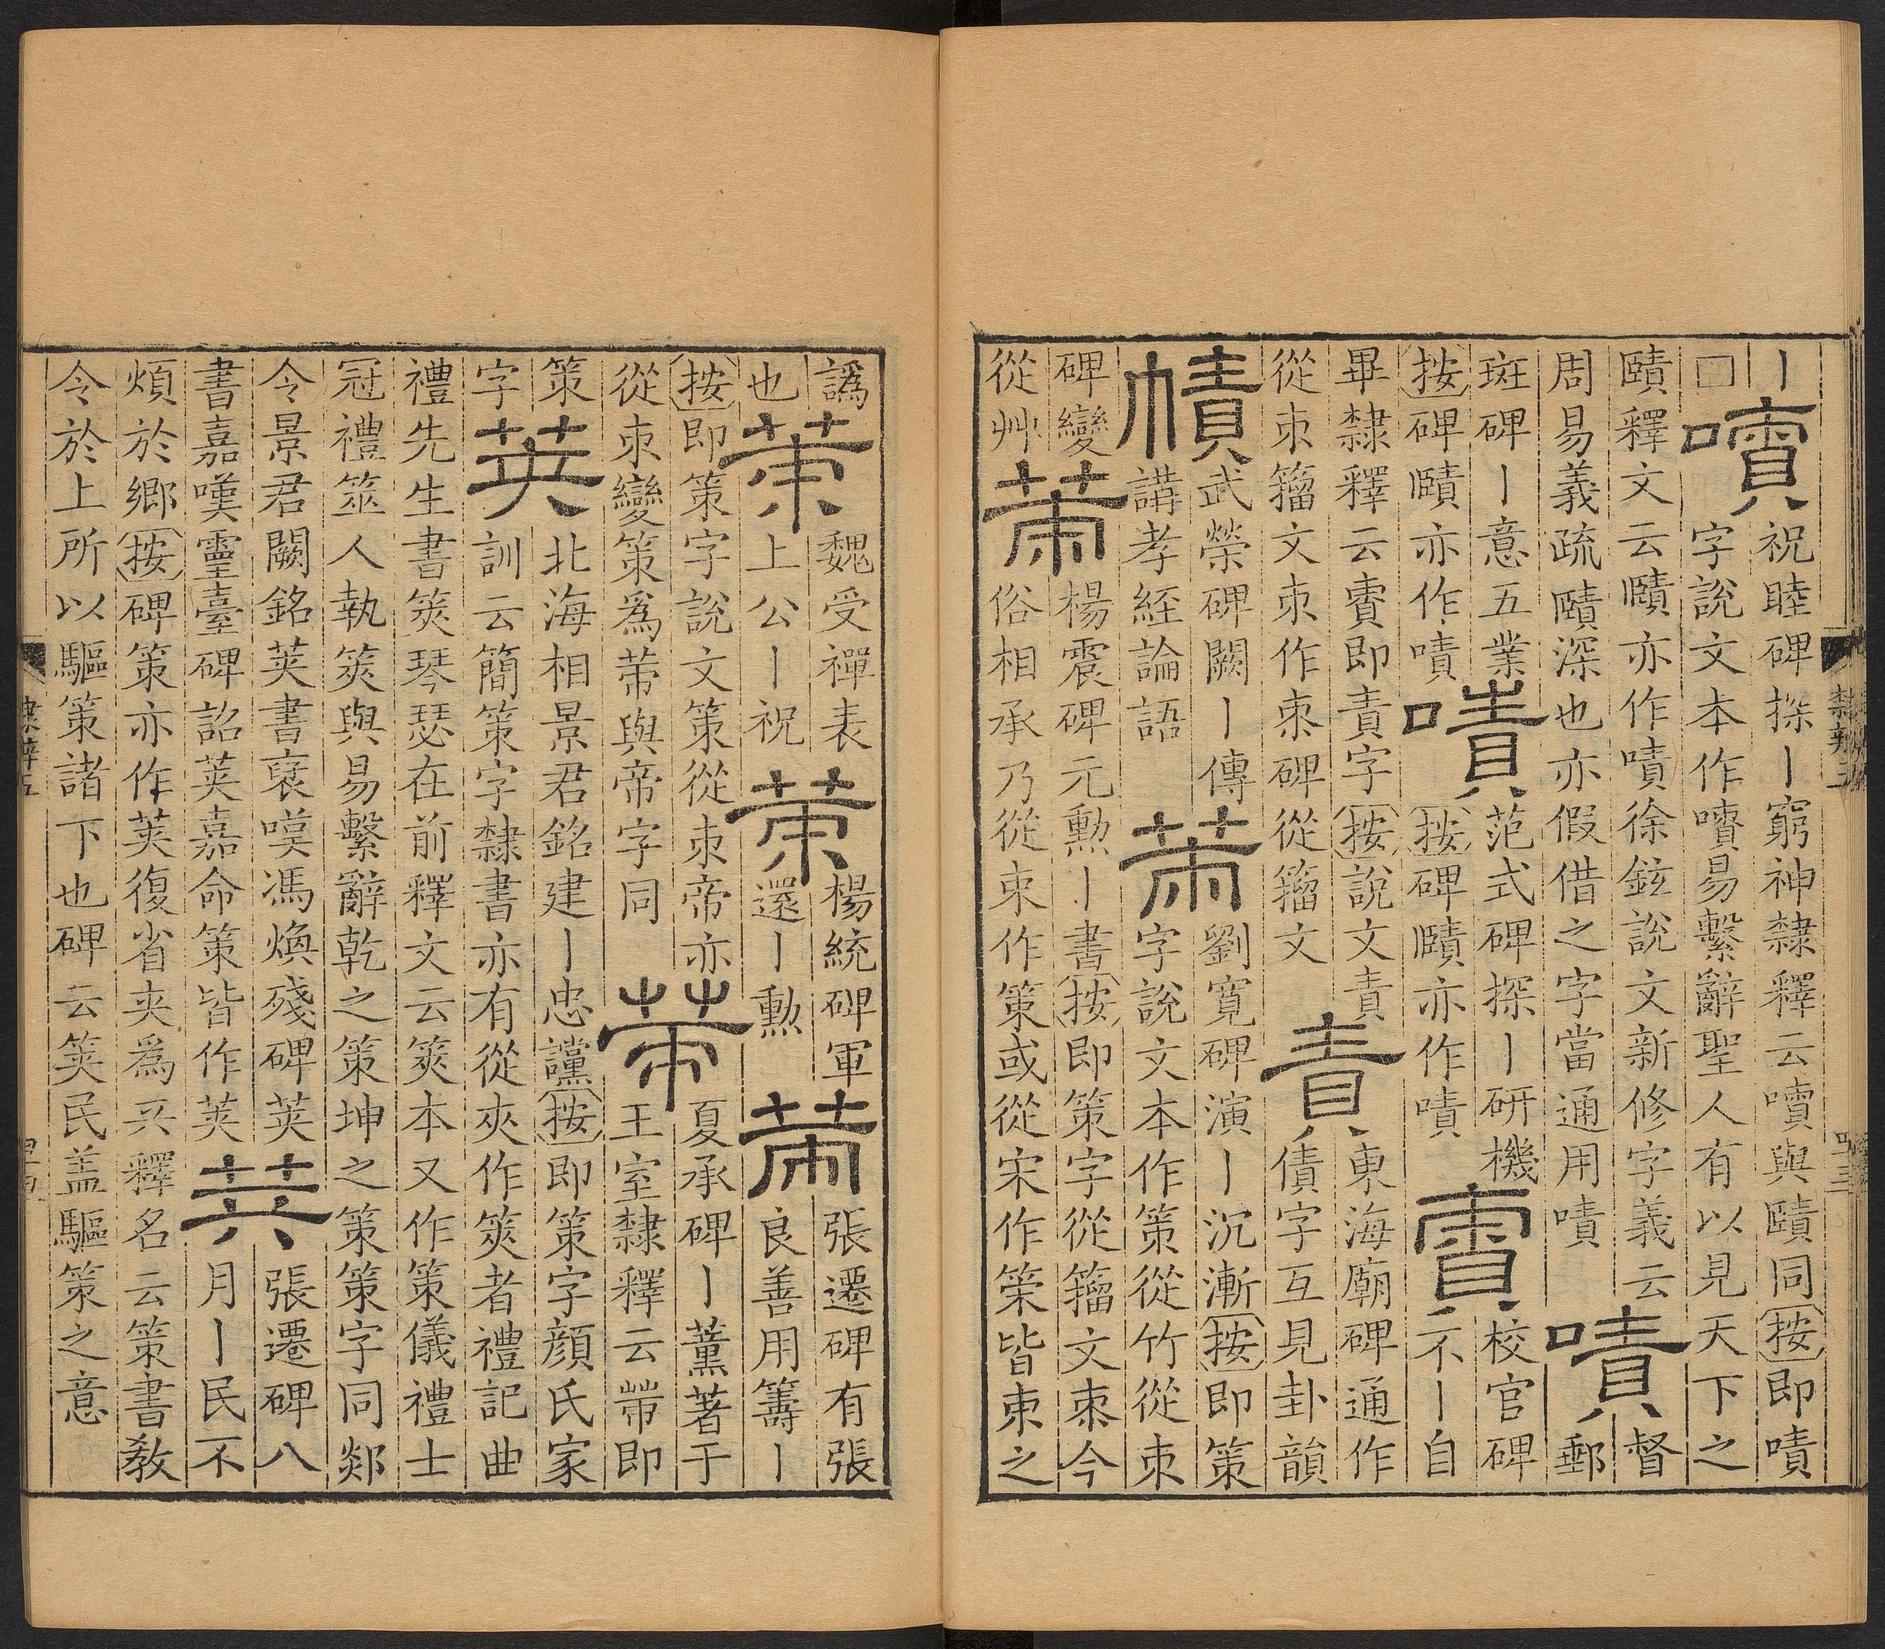 丨
□
嘖
祝睦碑探丨窮神隸釋云嘖與賾同按即嘖
字說文本作嘖易繫辭聖人有以見天下之
賾釋文云賾亦作嘖徐鉉說文新修字義云
周易義疏賾深也亦假借之字當通用嘖
嘖
督
郵
斑碑丨意五業
按碑賾亦作嘖
嘖
范式碑探丨研機
按碑賾亦作嘖
賷
校官碑
不丨自
畢隸釋云賷即責字按說文責
從朿籀文朿作朿碑從籀文
責
東海廟碑通作
債字互見卦韻
幘
武榮碑闕丨傳
講孝経論語
萗
劉寬碑演丨沉漸按即策
字說文本作策從竹從朿
碑變
從艸
萗
楊震碑元勳丨書按即策字從籀文朿今
俗相承乃從朿作策或從宋作筞皆朿之
譌
也
茦
魏受禪表
上公丨祝
茦
楊統碑軍
還丨勳
萗
張遷碑有張
良善用籌丨
按即策字說文策從朿帝亦
從朿變策為蔕與帝字同
夏承碑丨薰著于
王室隸釋云帶即
策
字
荚
北海相景君銘建丨忠讜按即策字顏氏家
訓云簡策字隸書亦有從夾作筴者禮記曲
禮先生書筴琴瑟在前釋文云筴本又作策儀禮士
冠禮筮人執筴與易繫辭乾之策坤之策策字同郯
令景君闕銘荚書裒嘆馮煥殘碑荚
書嘉嘆靈臺碑詔荚嘉命策皆作荚
張遷碑八
月丨民不
煩於鄉按碑策亦作荚復省夾為釋名云策書教
令於上所以驅策諸下也碑云筴民盖驅策之意